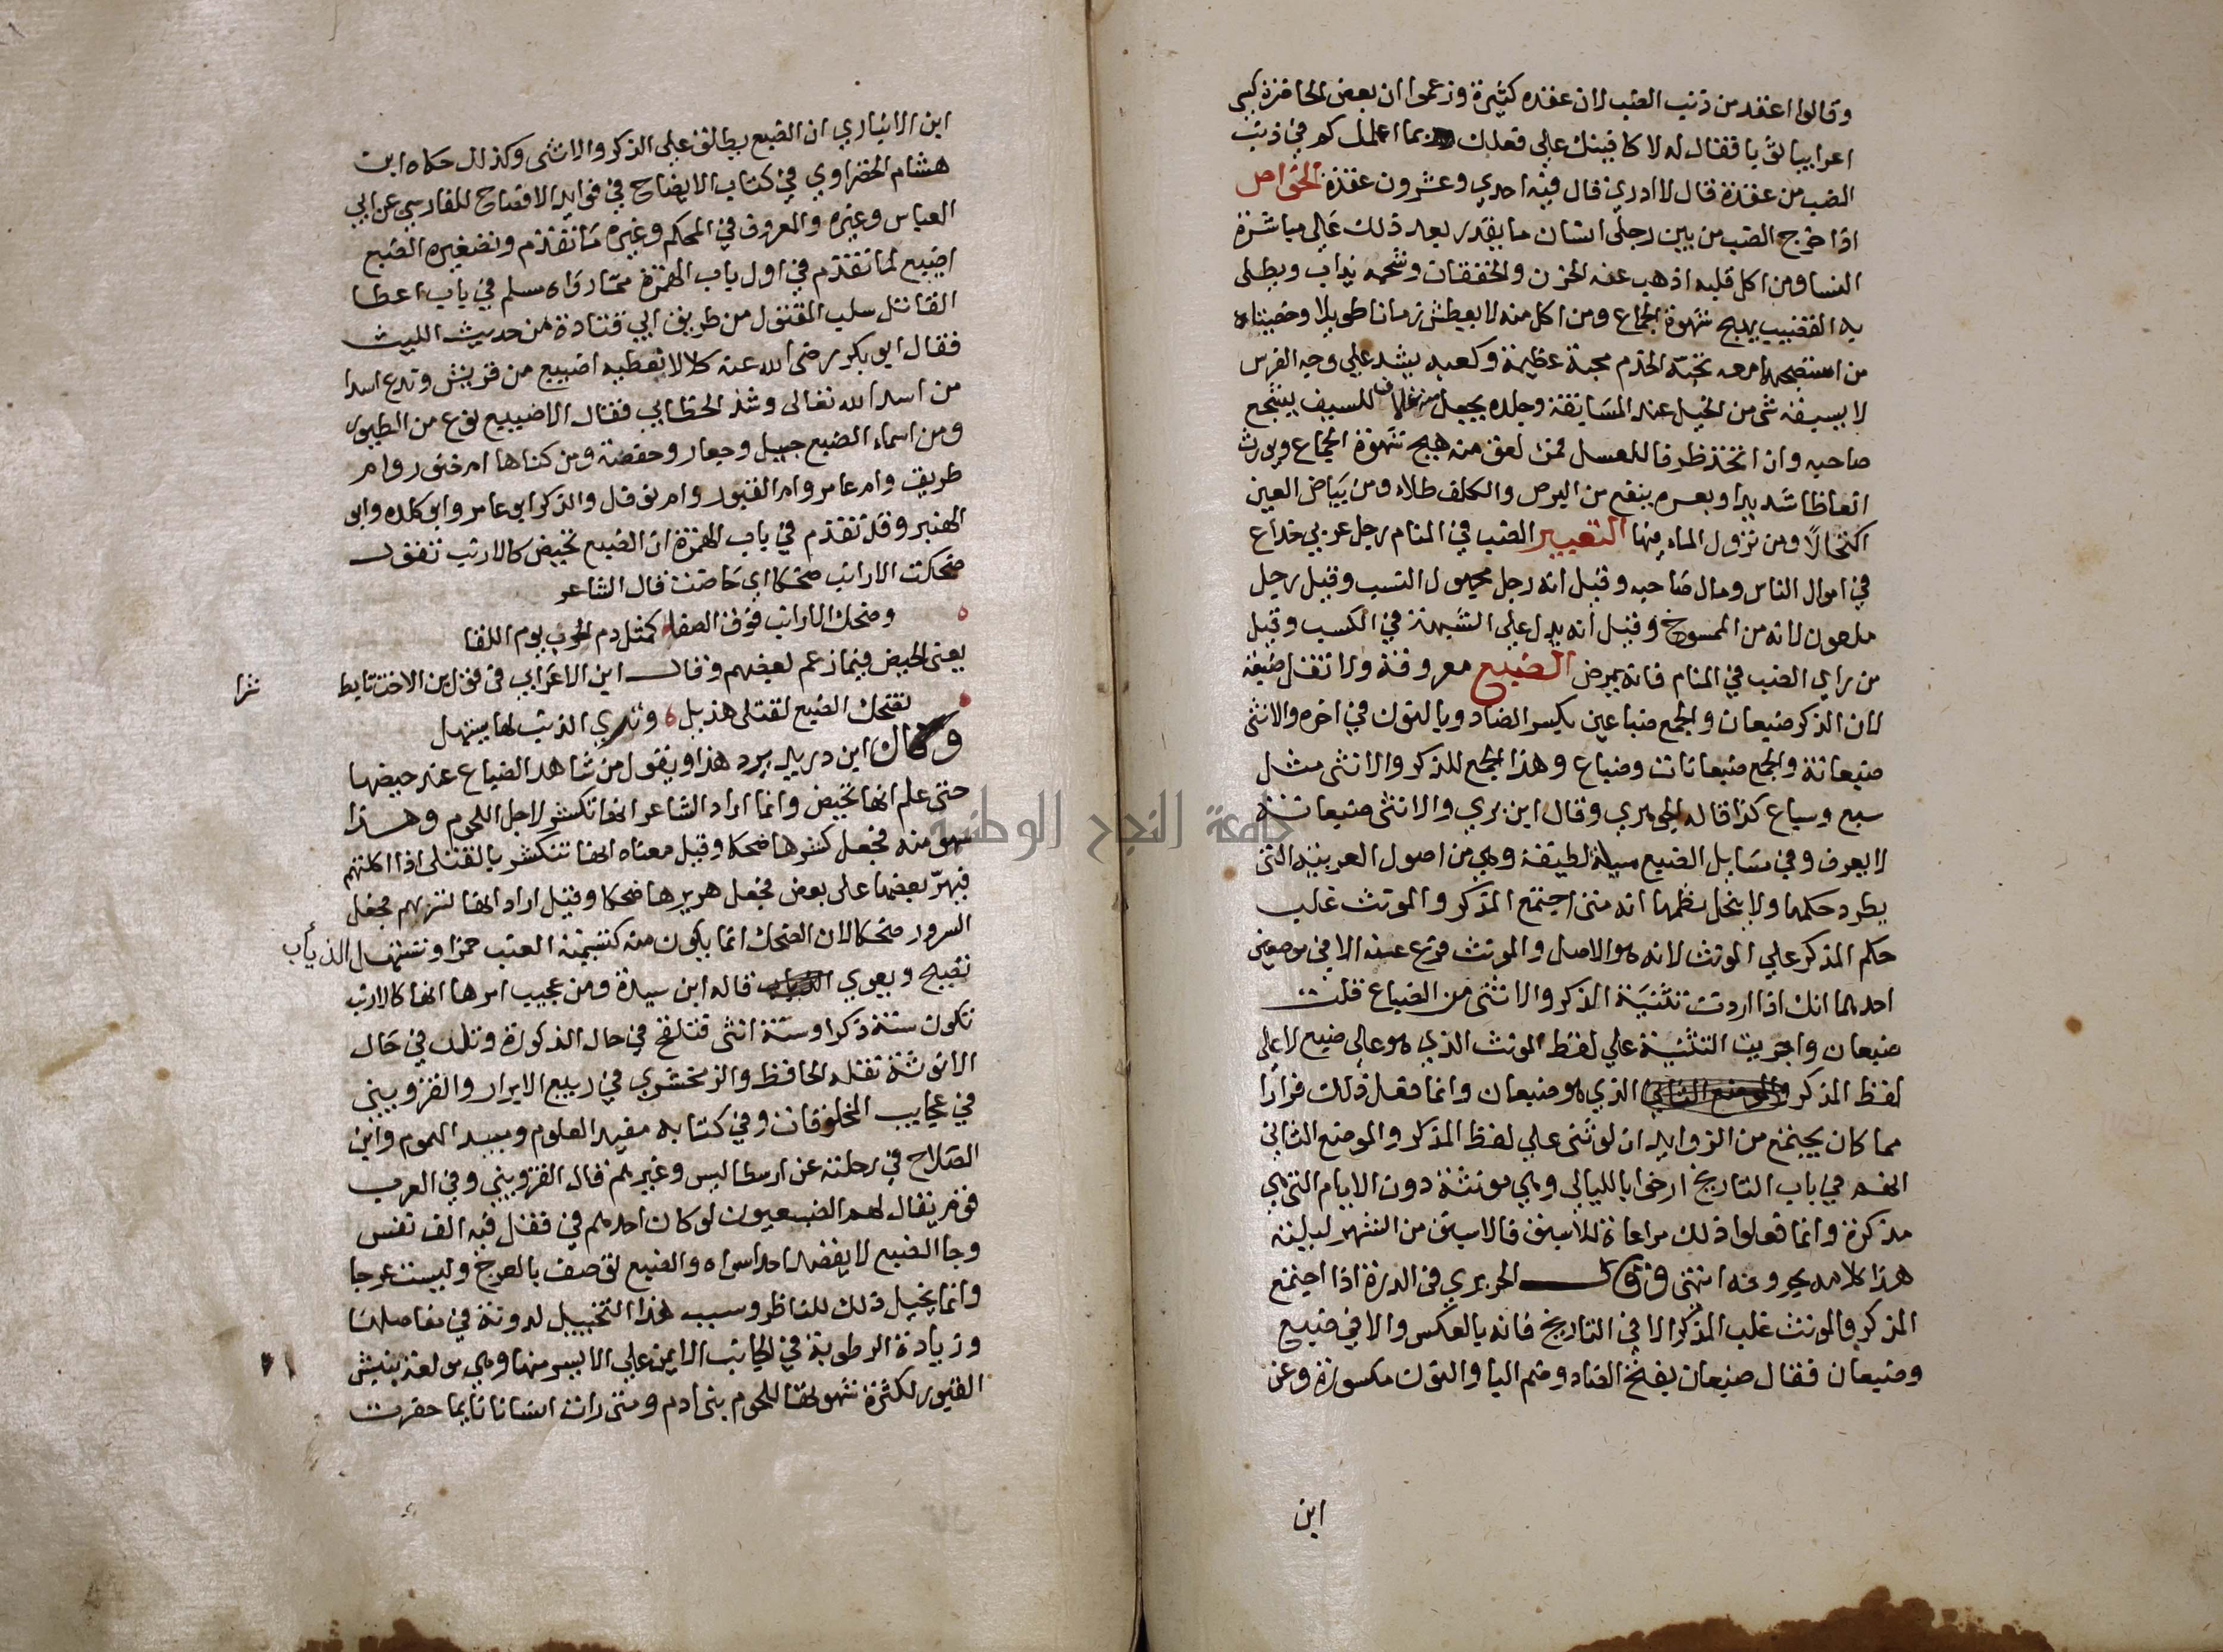 وقالوا اعقد من ذنب الضب لان عقده كثيرة وزعموا ان بعض الحاضرة كسى
اعرابيا ثوبا فقال له لا كافينك على فعلك بما اعلمك كم في ذنب
الضب من عقدة قال لا ادري قال فيه احدي وعشرون عقدة الخواص
اذا خرج الضب من بين رجلى انسان ما يقدر بعد ذلك على مباشرة
النسا ومن اكل قلبه اذهب عنه الحزن والخفقان وشحمه يذاب ويطلى
به القضيب يهيج شهوة الجماع ومن اكل منه لا يعطش زمانا طويلا وخصيتاه
من استصحبها معه تحبه الخدم محبة عظيمة وكعبه يشد علي وجه الفرس
لا يسبقه شى من الخيل عند المسابقة وجلده يجعل منه غلاف للسيف يشجع
صاحبه وان اتخذ ظرفا للعسل فمن لعق منه هيج شهوة الجماع ويورث
انعاظا شديدا وبعره ينفع من البرص والكلف طلاء ومن بياض العين
اكتحالا ومن نزول الماء فيها التعبير الضب في المنام رجل عربي خداع
في اموال الناس ومال صاحبه وقيل انه رجل مجهول النسب وقيل رجل
ملعون لانه من الممسوخ وقيل انه يدل علي الشبهة في الكسب وقيل
من راى الضب في المنام فانه يمرض الضبع معروفة ولا تقل ضبعة
لان الذكر ضبعان والجمع ضباعين بكسر الضاد وبالنون في اخره والانثى
ضبعانة والجمع ضبعانات وضباع وهذا الجمع للذكر والانثى مثل
سبع وسباع كذا قاله الجوهري وقال ابن بري والانثى ضبعانة
لا يعرف وفي مسايل الضبع مسئلة لطيفة وهي من اصول العربية التى
يطرد حكمها ولا ينحل نظمها انه متى اجتمع المذكر والمونث غلب
حكم المذكر علي المونث لانه هو الاصل والمونث فرع عنه الا في موضعين
احدهما انك اذا اردت تثنية الذكر والانثى من الضباع قلت
ضبعان واجريت التثنية علي لفظ المونث الذي هو على ضبع لا على
لفظ المذكر الذي هو ضبعان وانما فعل ذلك فرارا
مما كان يجتمع من الزوايد ان لو ثنى على لفظ المذكر والموضع الثانى
انهم في باب التاريخ ارخوا بالليالي وهي مونثة دون الايام التى هي
مذكرة وانما فعلوا ذلك مراعاة للاسبق فالاسبق من الشهر لليلته
هذا كلامه بحروفه انتهى وقال الحريري في الدرة اذا اجتمع
المذكر والمونث غلب المذكر الا في التاريخ فانه بالعكس والا في ضبع
وضبعان فقال ضبعان بفتح الضاد وضم البا والنون مكسورة وعن
ابن
ابن الانباري ان الضبع يطلق علي الذكر والانثى وكذلك حكاه ابن
هشام الخضراوي في كتاب الايضاح في فوايد الافصاح للفارسي عن ابي
العباس وغيره والمعروف في المحكم وغيره ما تقدم وتصغيره الضبع
اضيبع لما تقدم في اول باب الهمزة مما رواه مسلم في باب اعطا
القاتل سلب المقتول من طريق ابي قتادة من حديث الليث
فقال ابو بكر رضى الله عنه كلا لا تعطيه اضيبع من قريش وتدع اسدا
من اسد الله تعالى وشذ الخطابي فقال الاضيبع نوع من الطيور
ومن اسماء الضبع جيبل وجعار وحفصة ومن كناها ام خنور وام
طريق وام عامر وام القبور وام نوفل والذكر ابو عامر وابو كلده وابو
الهنبر وقد تقدم في باب الهمزة ان الضبع تحيض كالارنب تقول
ضحكت الارانب ضحكا اي حاضت قال الشاعر
وضحك الارانب فوق الصفا كمثل دم الحرب يوم اللقا
يعنى الحيض فيما زعم بعضهم وقال ابن الاعرابي في قول ابن الاخت تابط شرا
تضحك الضبع لقتلى هذيل وترى الذئب لها يستهل
وكان ابن دريد يرد هذا ويقول من شاهد الضباع عند حيضها
حتى علم انها تحيض وانما اراد الشاعر انها تكشر لاجل اللحوم وهذا
سهو منه فجعل كشرها ضحكا وقيل معناه انها تتكشر بالقتلى اذا اكلتهم
فيهر بعضها على بعض فجعل هريرها ضحكا وقيل اراد انها لتسر بهم فجعل
السرور ضحكا لان الضحك انما يكون منه كتسمية العنب خمرا وتستهل الذياب
تصيح ويعوي قاله ابن سيدة ومن عجيب امرها انها كالارنب
تكون سنة ذكرا وسنة انثى فتلقح في حال الذكورة وتلد في حال
الانوثة نقله الحافظ والزمخشري في ربيع الابرار والقزويني
في عجايب المخلوقات وفي كتابه مفيد العلوم ومبيد الهموم وابن
الصلاح في رحلته عن ارسطاليس وغيرهم قال القزويني وفي العرب
قوم يقال لهم الضبعيون لو كان احدهم في قفل فيه الف نفس
وجا الضبع لا يقصد احدا سواه والضبع توصف بالعرج وليست عرجا
وانما يخيل ذلك للناظر وسبب هذا التخييل لدونة في مفاصلها
وزيادة الرطوبة في الجانب الايمن علي الايسر منها وهي مولعة بنبش
القبور لكثرة شهوتها للحوم بنى ادم ومتى رات انسانا نايما حفرت
جامعة النجاح الوطنية